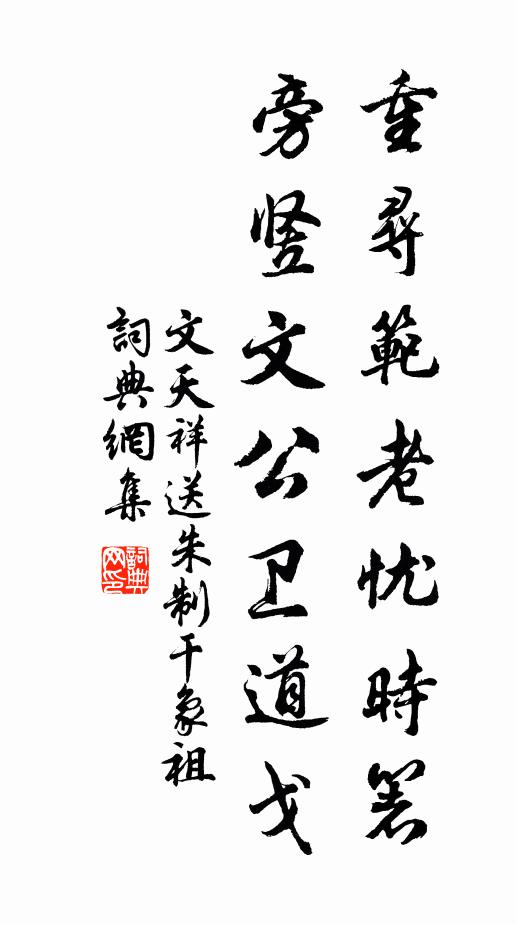 重尋範老忧時箸
旁竖文公卫道戈
文天祥送朱制干象祖
詞典網集
詞典网印